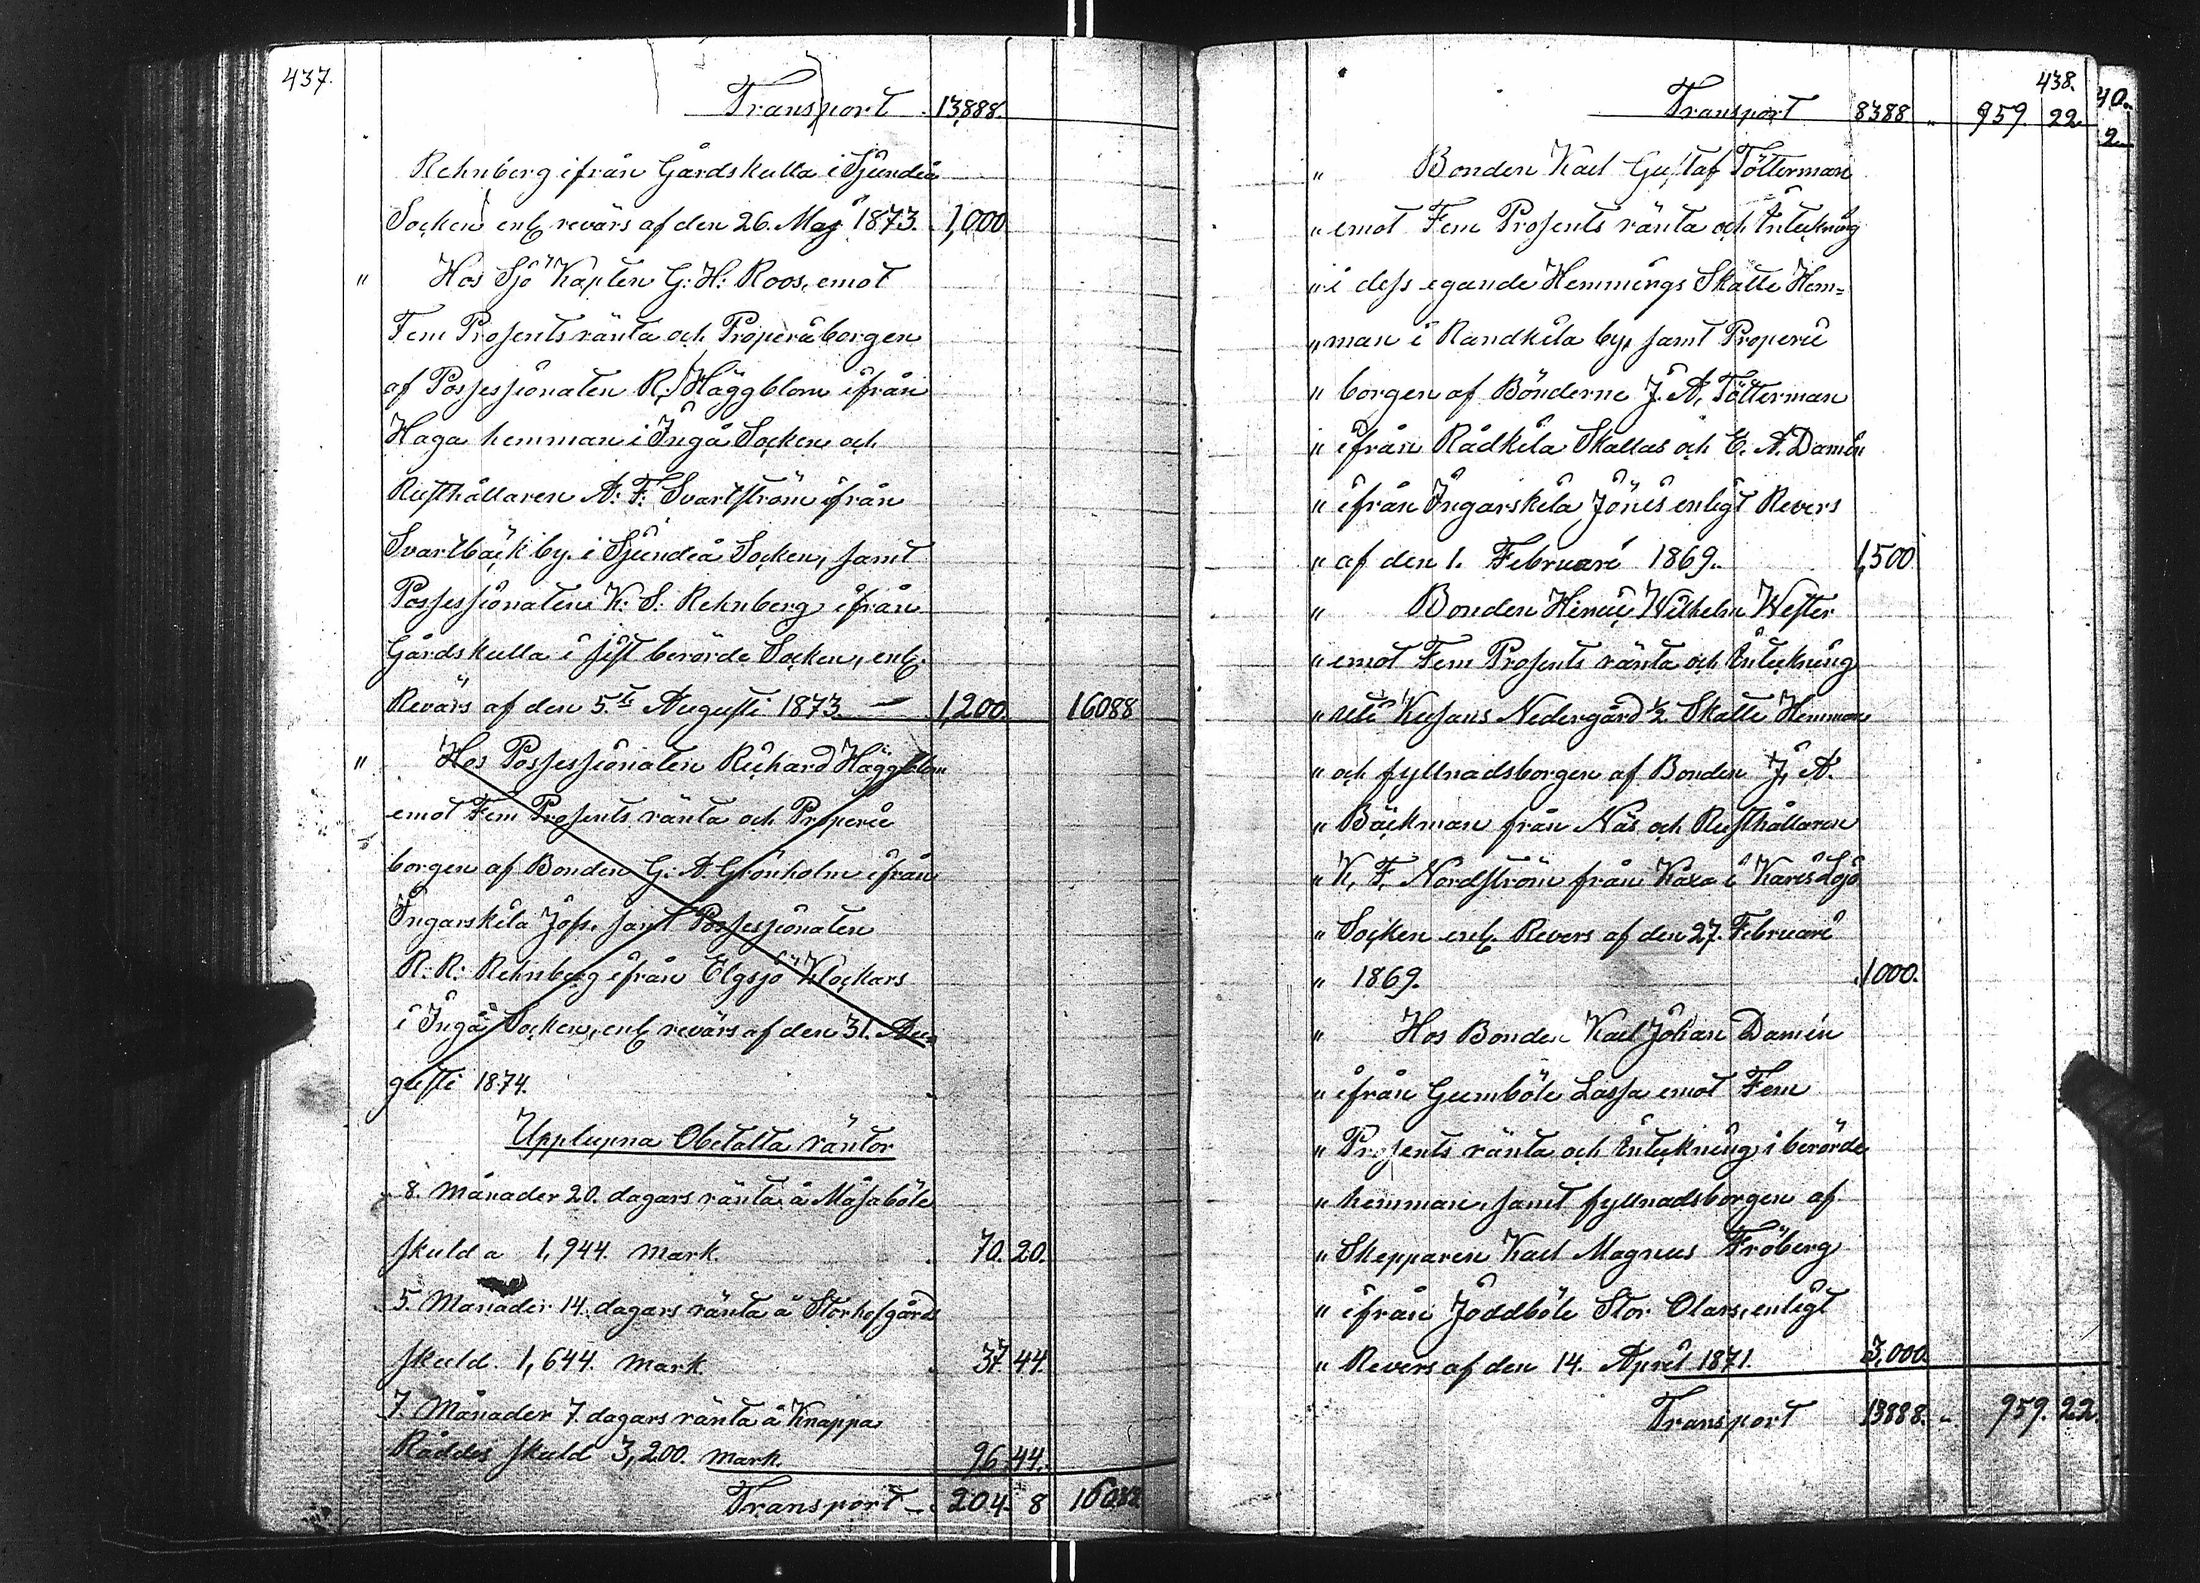 437.
Transport 13,888.
Rehnberg ifrån Gårdskulla i Sjundeå
Socken enl. revärs af den 26. Maj 1873. 1,000
" Hos Sjö Kapten G: H: Roos, emot
Fem Prosents ränta och Properieborgen
af Possessionaten R. Häggblom ifrån
Haga hemman i Ingå Socken och
Rusthållaren A: F: Svartström ifrån
Svartbäck by. i Sjundeå Socken, samt
Possessionaten K: S: Rehnberg ifrån
Gårdskulla i sist berörde Socken, enl.
Revärs af den 5.te Augusti 1873. 1,200. 16088
" Hos Possessionaten Richard Häggblom
emot Fem Prosents ränta och Properie
borgen af Bonden G. A. Grönholm ifrån
Ingarskila Jofs. samt Possessionaten
R: R: Rehnberg ifrån Elgsjö Klockars
i Ingå Socken, enl. revärs af den 31. Au=
gusti 1874.
Upplupna Obetalta räntor
8. Månader 20. dagars ränta å Måsaböle
skuld a 1,944. mark. 70. 20.
5. Månader 14. dagars ränta å Storhofgårds
skuld. 1,644. mark. 37. 44.
7. Månader 7. dagars ränta å Knappa
Räddes skuld 3,200. mark. 96. 44.
Transport 204. 8 16088
438.
Transport 8388 " 959. 22.
" Bonden Karl Gustaf Tötterman
" emot Fem Prosents ränta och Inteckning
" i dess egande Hemmings Skatte Hem=
" man i Randkila by, samt Properie
" borgen af Bönderne J. A. Tötterman
" ifrån Rådkila Skallas och E. A. Damén
" ifrån Ingarskila Jönis enligt Revers
" af den 1. Februari 1869. 1,500
" Bonden Hinric Wilhelm Wester
" emot Fem Prosents ränta och Inteckning
" uti Kusans Nedergård ½ Skatte Hemman
" och fyllnadsborgen af Bonden J. A.
" Bäckman från Näs och Rusthållaren
" K. F. Nordström från Kaxa i Karis Lojo
" Socken enl. Revers af den 27. Februari
" 1869. 1000.
" Hos Bonden Karl Johan Damén
" ifrån Gumböle Lassa emot Fem
" Prosents ränta och Inteckning i berörde
" hemman, samt fyllnadsborgen af
" Skepparen Karl Magnus Fröberg
" ifrån Joddböle Stor Olars, enligt
" Revers af den 14. April 1871. 3,000.
Transport 13888. " 959. 22.
40.
2.